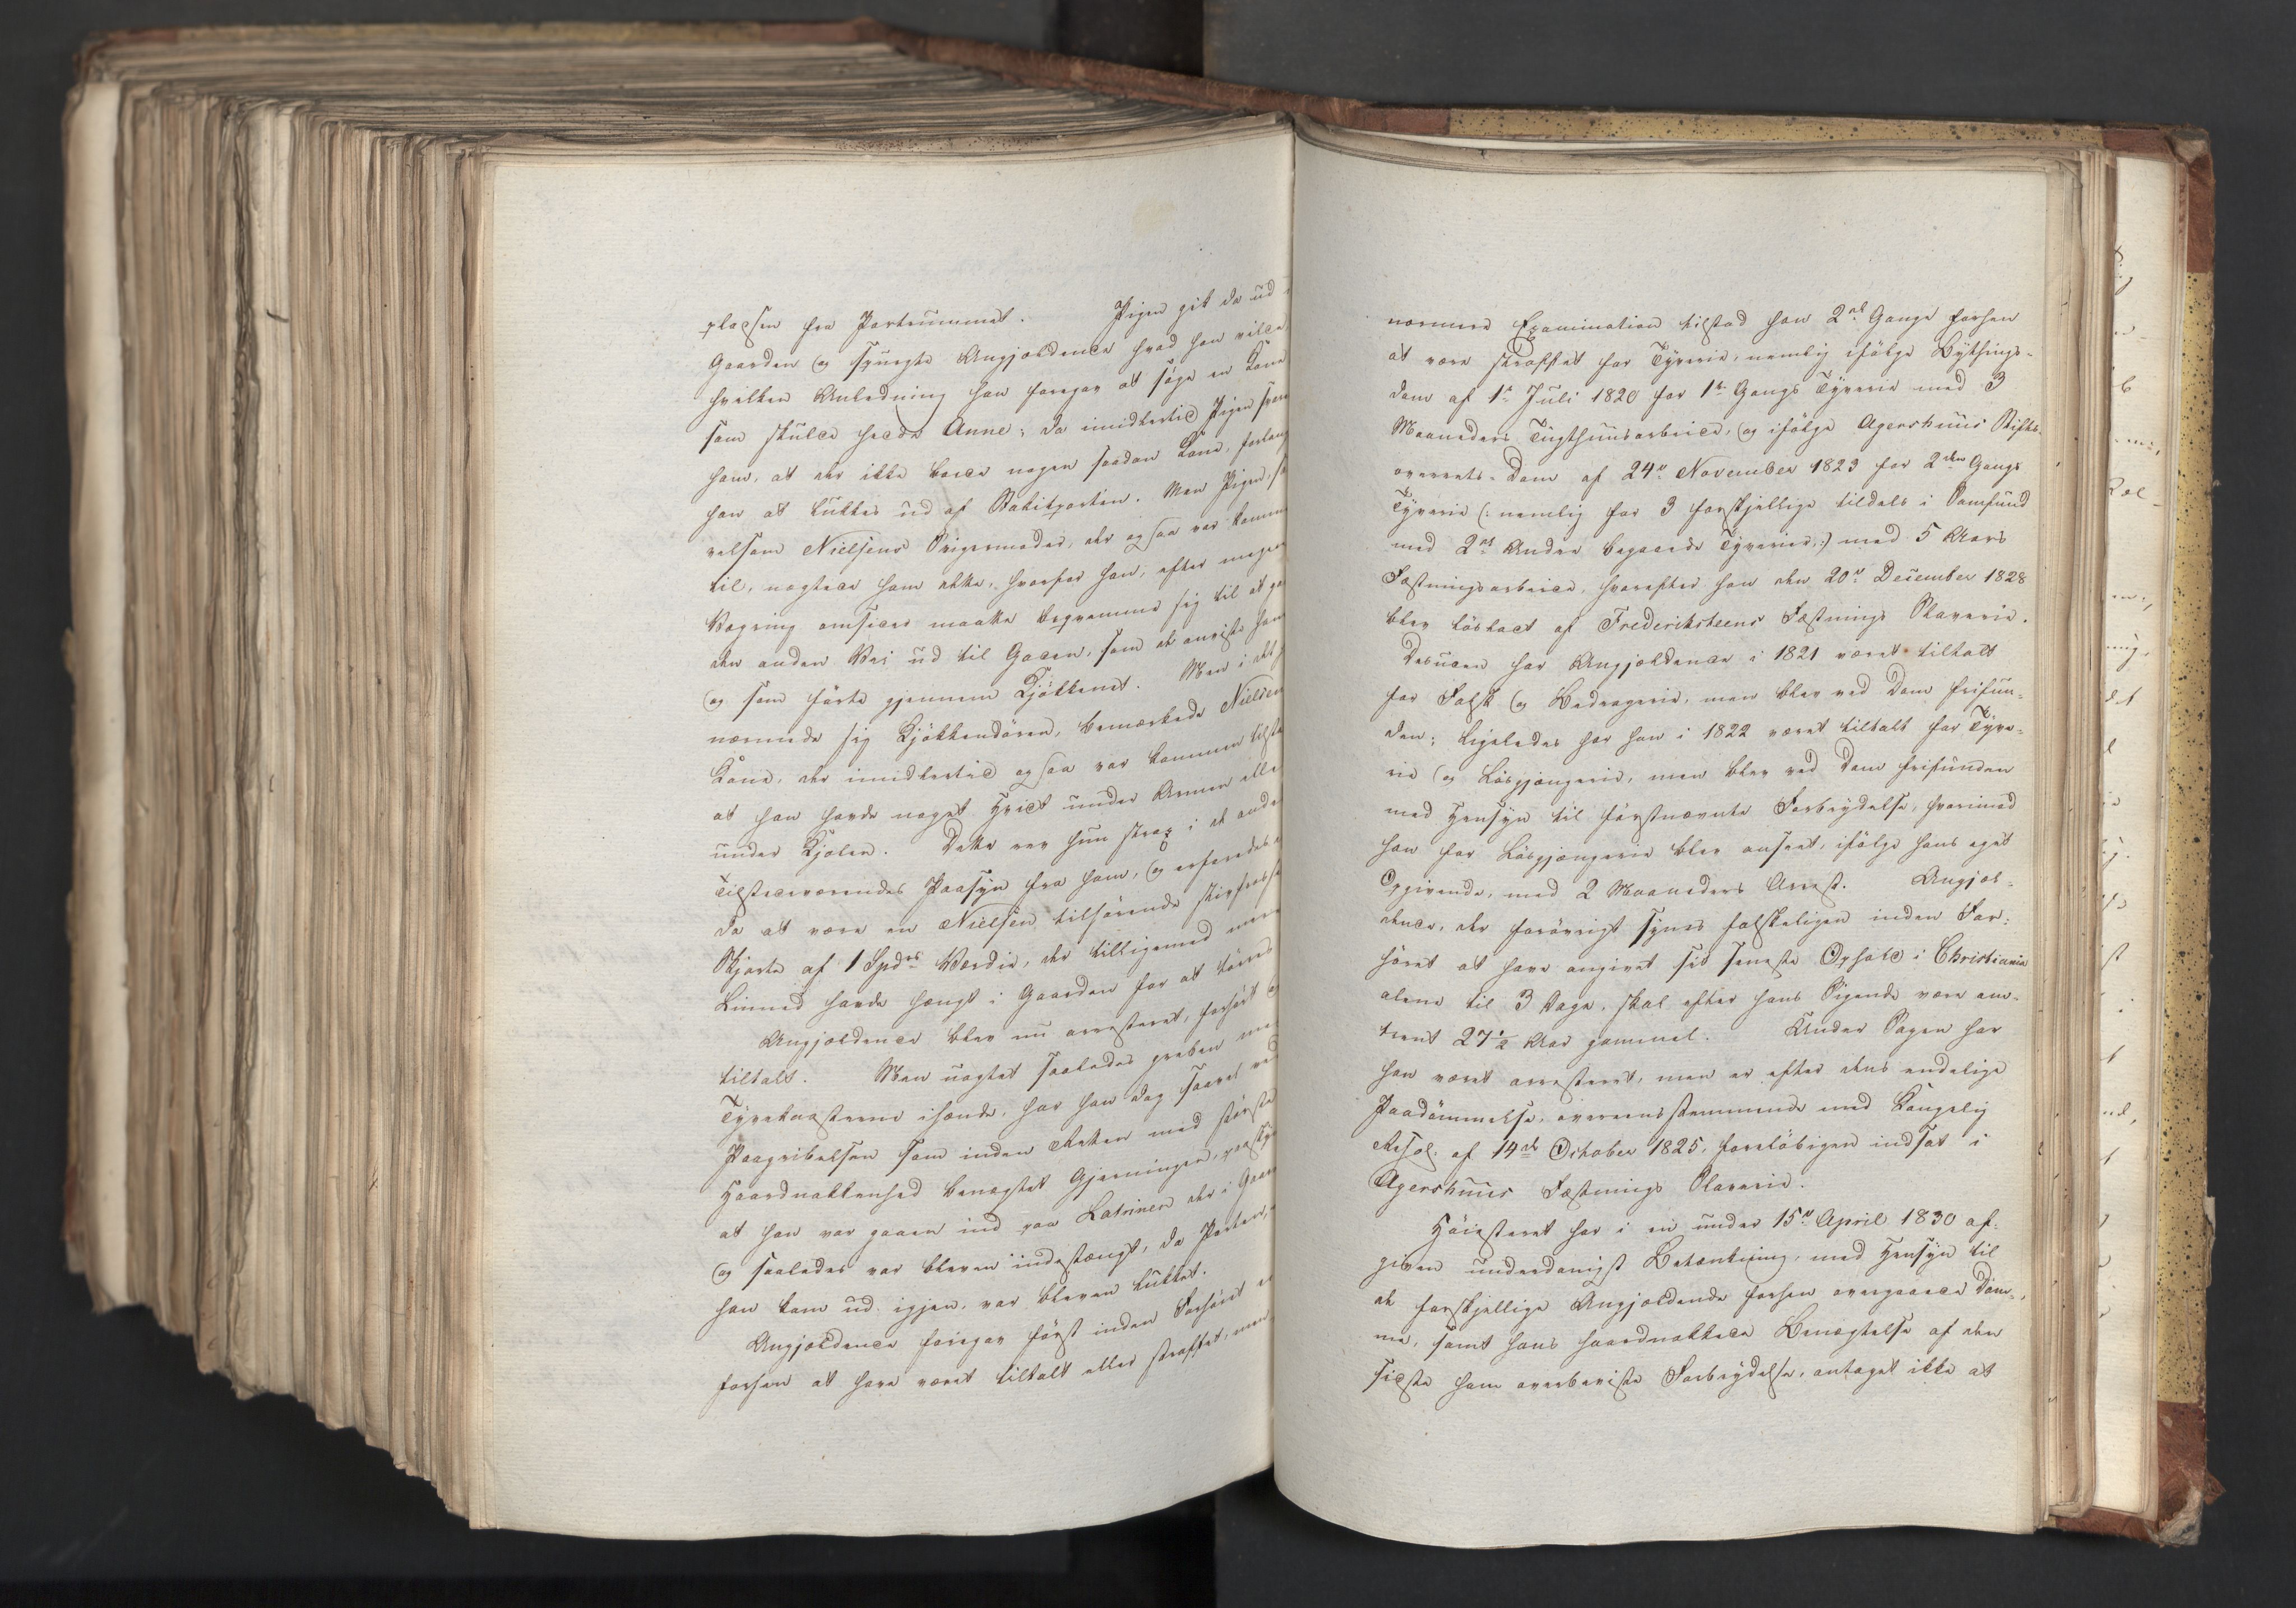 pladsen fra Portrummet. Pigen gik da ud i
Gaarden og spurgte Angjeldende hvad han vilde
hvilken Anledning han foregav at søge en Kone
som skulde hedde Anne; da imidlertid Pigen svare
ham, at der ikke boede nogen saadan Kone, forlang
han at lukkes ud af Stakitporten. Men Pigen, sa
velsom Nielsens Svigermoder, der ogsaa var komme
til, nægtede ham dette, hvorfor han, efter megen
Vægring omsider maatte beqvemme sig til at gaa
den anden Vei ud til Gaden, som de anviste ham
og som førte gjennem Kjøkkenet. Men i det h
nærmede sig Kjøkkendøren, bemærkede Nielsens
Kone, der imidlertid ogsaa var kommen tilste
at han havde noget Hvidt under Armen elle
under Kjolen. Dette rev hun strax i de andr
Tilstedeværendes Paasyn fra ham, og erfaredes
da at være en Nielsen tilhørende
Skjorte af 1 Spdrs Værdie, der tilligemed mere
Linned havde hængt i Gaarden for at tørres
Angjeldende blev nu arresteret, forhørt og
tiltalt. Men uagtet saaledes greben med
Tyvekosterne ihænde, har han dog saavel ved
Paagribelsen som inden Retten med største
Haardnakkenhed benægtet Gjerningen, paastaa
at han var gaaen ind paa Latrinen der i Gaar
og saaledes var bleven indestængt, da Porten,
han kom ud igjen, var bleven lukket.
Angjeldende foregav først inden Forhøret ei
forhen at have været tiltalt eller straffet, men
nærmere Examination tilstod han 2de Gange forhen
at være straffet for Tyverie, nemlig ifølge Bythings-
dom af 1ste Juli 1820 for 1ste Gangs Tyverie med 3
Maaneders Tugthuusarbeide, og ifølge Agershuus Stifts-
overrets-Dom af 24de November 1823 for 2den Gangs
Tyverie (: nemlig for 3 forskjellige tildels i Samfund
med 2de Andre begaaede Tyverier :) med 5 Aars
Fæstningsarbeide, hvorefter han den 20de December 1828
blev løsladt af Frederiksteens Fæstnings Slaverie.
Desuden har Angjeldende i 1821 været tiltalt
for Falsk og Bedragerie, men blev ved Dom frifun-
den; ligeledes har han i 1822 været tiltalt for Tyve-
rie og Løsgjængerie, men blev ved Dom frifunden
med Hensyn til førstnævnte Forbrydelse, hvorimod
han for Løsgjængerie blev anseet, ifølge hans eget
Opgivende, med 2 Maaneders Arrest. Angjel-
dende, der forøvrigt synes falskeligen inden For-
høret at have angivet sit seneste Ophold i Christiania
alene til 3 Dage, skal efter hans Sigende være om-
trent 27½ Aar gammel. Under Sagen har
han været arresteret, men er efter dens endelige
Paadømmelse, overeensstemmende med Kongelig
Resol. af 14de October 1825, foreløbigen indsat i
Agershuus Fæstnings Slaverie.
Høiesteret har i en under 15de April 1830 af-
given underdanigst Betænkning, med Hensyn til
de forskjellige Angjeldende forhen overgaaede Dom-
me, samt hans haardnakkede Benægtelse af den
sidste ham overbeviste Forbrydelse, antaget ikke at